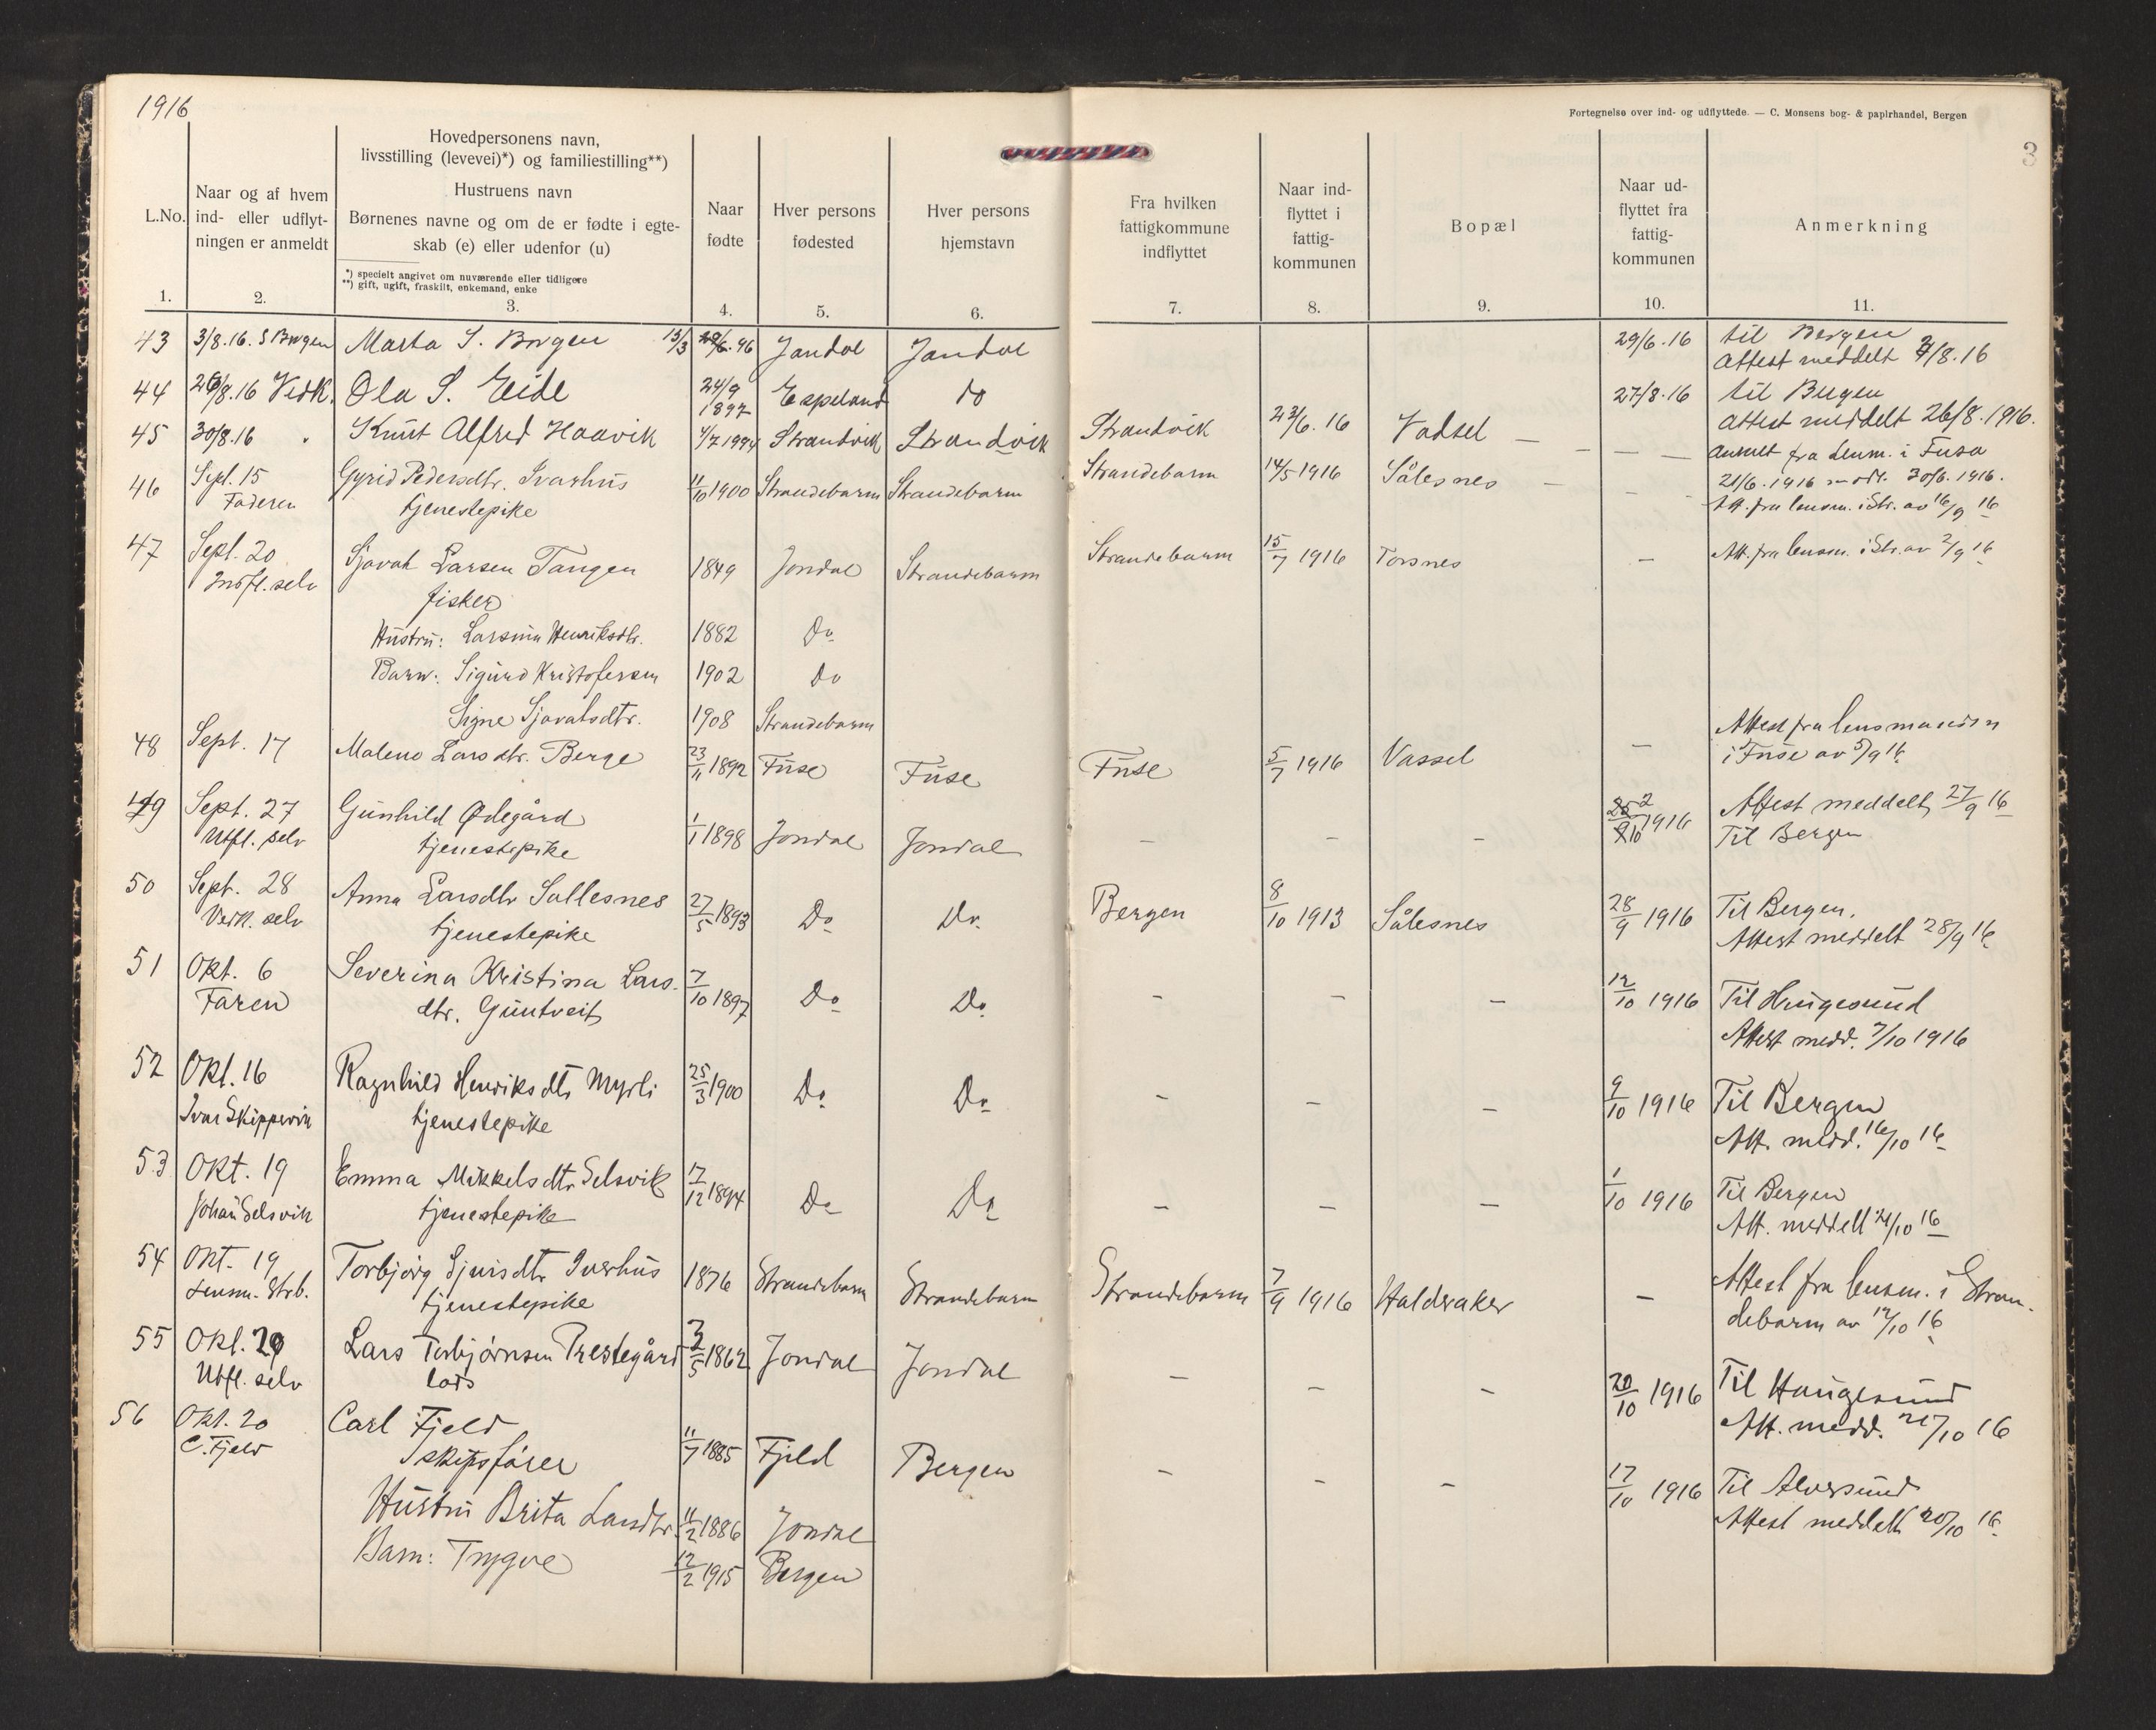 1916
Fortegnelse over ind- og udflyttede. — C. Monsens bog- & papirhandel, Bergen
3
L.No.
Naar og af hvem
ind- eller udflyt-
ningen er anmeldt
Hovedpersonens navn,
livsstilling (levevei)*) og familiestilling**)
Hustruens navn
Børnenes navne og om de er fødte i egte-
skab (e) eller udenfor (u)
*) specielt angivet om nuværende eller tidligere
**) gift, ugift, fraskilt, enkemand, enke
Naar
fødte
Hver persons
fødested
Hver persons
hjemstavn
Fra hvilken
fattigkommune
indflyttet
Naar ind-
flyttet i
fattig-
kommunen
Bopæl
Naar ud-
flyttet fra
fattig-
kommunen
Anmerkning
1. 2. 3. 4. 5. 6. 7. 8. 9. 10. 11.
43 3/8.16. S Borgen Marta S. Borgen 13/3 96 Jondal Jondal 29/6.16 til Bergen
Attest meddelt /8.16
44 26/8.16 Vedk. Ola S. Eide 24/9 1897 Espeland do 27/8.16 til Bergen
Attest meddelt 26/8.1916.
45 30/8.16 " Knut Alfred Haavik 4/7 1994 Strandvik Strandvik Strandvik 23/6.16 Vadsel — — — — anmelt fra lensm. i Fusa
21/6.1916 30/6.1916.
46 Sept. 15 Gyrid Pedersdtr. Ivarhus 11/10 1900 Strandebarm Strandebarm Strandebarm 14/5 1916 Sålesnes — —
Faderen tjenestepike fra lensm. i Str. av 16/9 16
47 Sept. 20 Sjovat Larsen Tangen 1849 Jondal Strandebarm Strandebarm 15/7 1916 Torsnes — Att. fra lensm. i Str. av 2/9 16
Indfl. selv fisker
Hustru: Larsina Henriksdtr. 1882 Do
Barn: Sigurd Kristofersen 1902 Do
Signe Sjovatsdtr. 1908 Strandebarm
48 Sept. 17 Malene Larsdtr. Berge 23/11 1892 Fuse Fuse Fuse 5/7 1916 Vassel — Attest fra lensmanden
i Fuse av 5/9 16
49 Sept. 27 Gunhild Ødegård 1/1 1898 Jondal Jondal — — — 2/10 1916 Attest meddelt 27/9 16
Utfl. selv tjenestepike Til Bergen
50 Sept. 28 Anna Larsdtr Sallesnes 27/5 1893 Do Do Bergen 8/10 1913 Sålesnes 28/9 1916 Til Bergen.
Vedk. selv tjenestepike Attest meddelt 28/9 16
51 Okt. 6 Severina Kristina Lars- 7/10 1897 Do Do — — — 12/10 1916 Til Haugesund
Faren dtr. Guntveit Attest medd. 7/10 1916
52 Okt. 16 Ragnhild Henriksdtr Myrli 25/3 1900 Do Do — — — 9/10 1916 Til Bergen
Ivar Skippervik tjenestepike Att. medd. 16/10 16
53 Okt. 19 Emma Mikkelsdtr Selsvik 17/12 1894 Do Do — — — 1/10 1916 Til Bergen
Johan Selsvik tjenestepike Att. meddelt 21/10 16
54 Okt. 19 Torbjørg Sjursdtr Iverhus 1876 Strandebarm Strandebarm Strandebarm 7/9 1916 Halderaker — Attest fra lensm. i Stran-
Lensm. Strb. tjenestepike debarm av 12/10 16
55 Okt. 20 Lars Torbjørnsen Prestegård 3/5 1862 Jondal Jondal — — — 20/10 1916 Til Haugesund
Utfl. selv lods Att. medd. 21/10 16
56 Okt. 20 Carl Fjeld 11/7 1885 Fjeld Bergen — — — 17/10 1916 Til Alversund
C. Fjeld skipsfører Attest meddelt 20/10 16
Hustru Brita Larsdtr. 11/2 1886 Jondal
Barn: Trygve 12/2 1915 Bergen